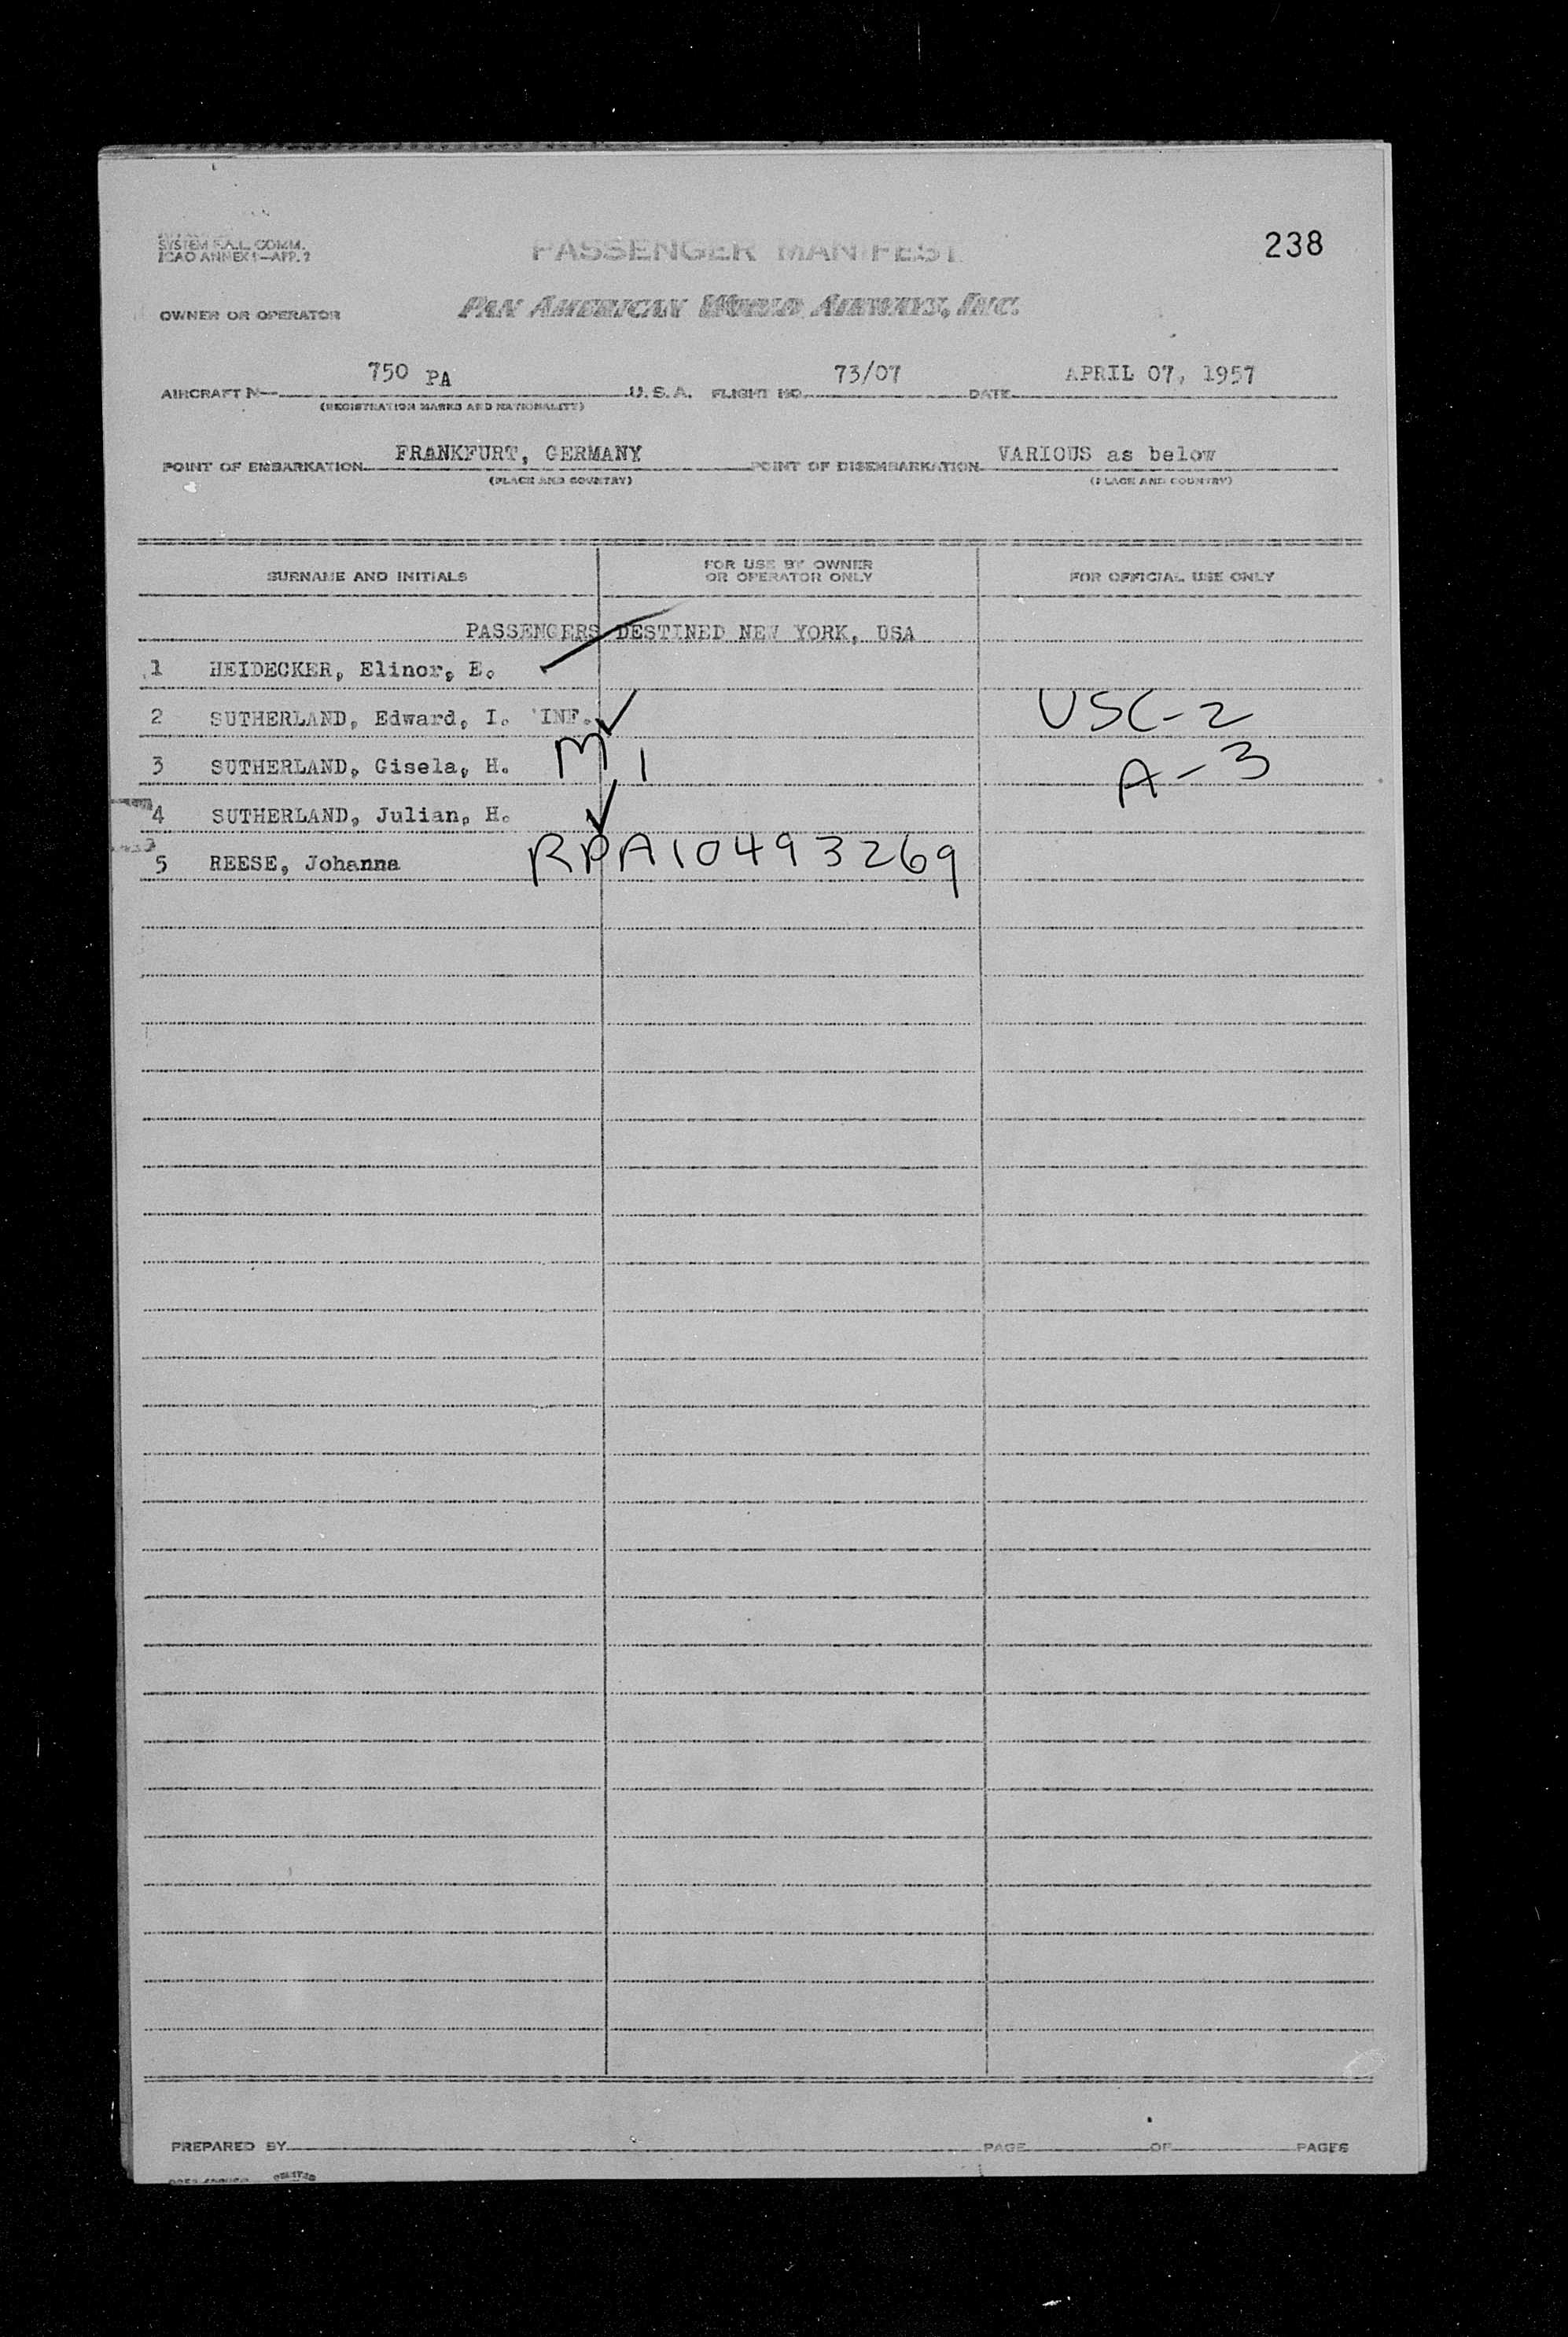 SYSTEM F.A.L. COMM.
ICAO ANNEX 9—APP. 2
PASSENGER MANIFEST
238
OWNER OR OPERATOR
PAN AMERICAN WORLD AIRWAYS, INC.
AIRCRAFT N— 750 PA U.S.A. FLIGHT NO. 73/07 DATE APRIL 07, 1957
(REGISTRATION MARKS AND NATIONALITY)
POINT OF EMBARKATION FRANKFURT, GERMANY POINT OF DISEMBARKATION VARIOUS as below
(PLACE AND COUNTRY) (PLACE AND COUNTRY)
SURNAME AND INITIALS
FOR USE BY OWNER
OR OPERATOR ONLY
FOR OFFICIAL USE ONLY
PASSENGERS DESTINED NEW YORK, USA
1 HEIDECKER, Elinor, E.
2 SUTHERLAND, Edward, I. INF. ✓ USC-2
3 SUTHERLAND, Gisela, H. M 1 A-3
4 SUTHERLAND, Julian, H. ✓
5 REESE, Johanna RPA10493269
PREPARED BY PAGE OF PAGES